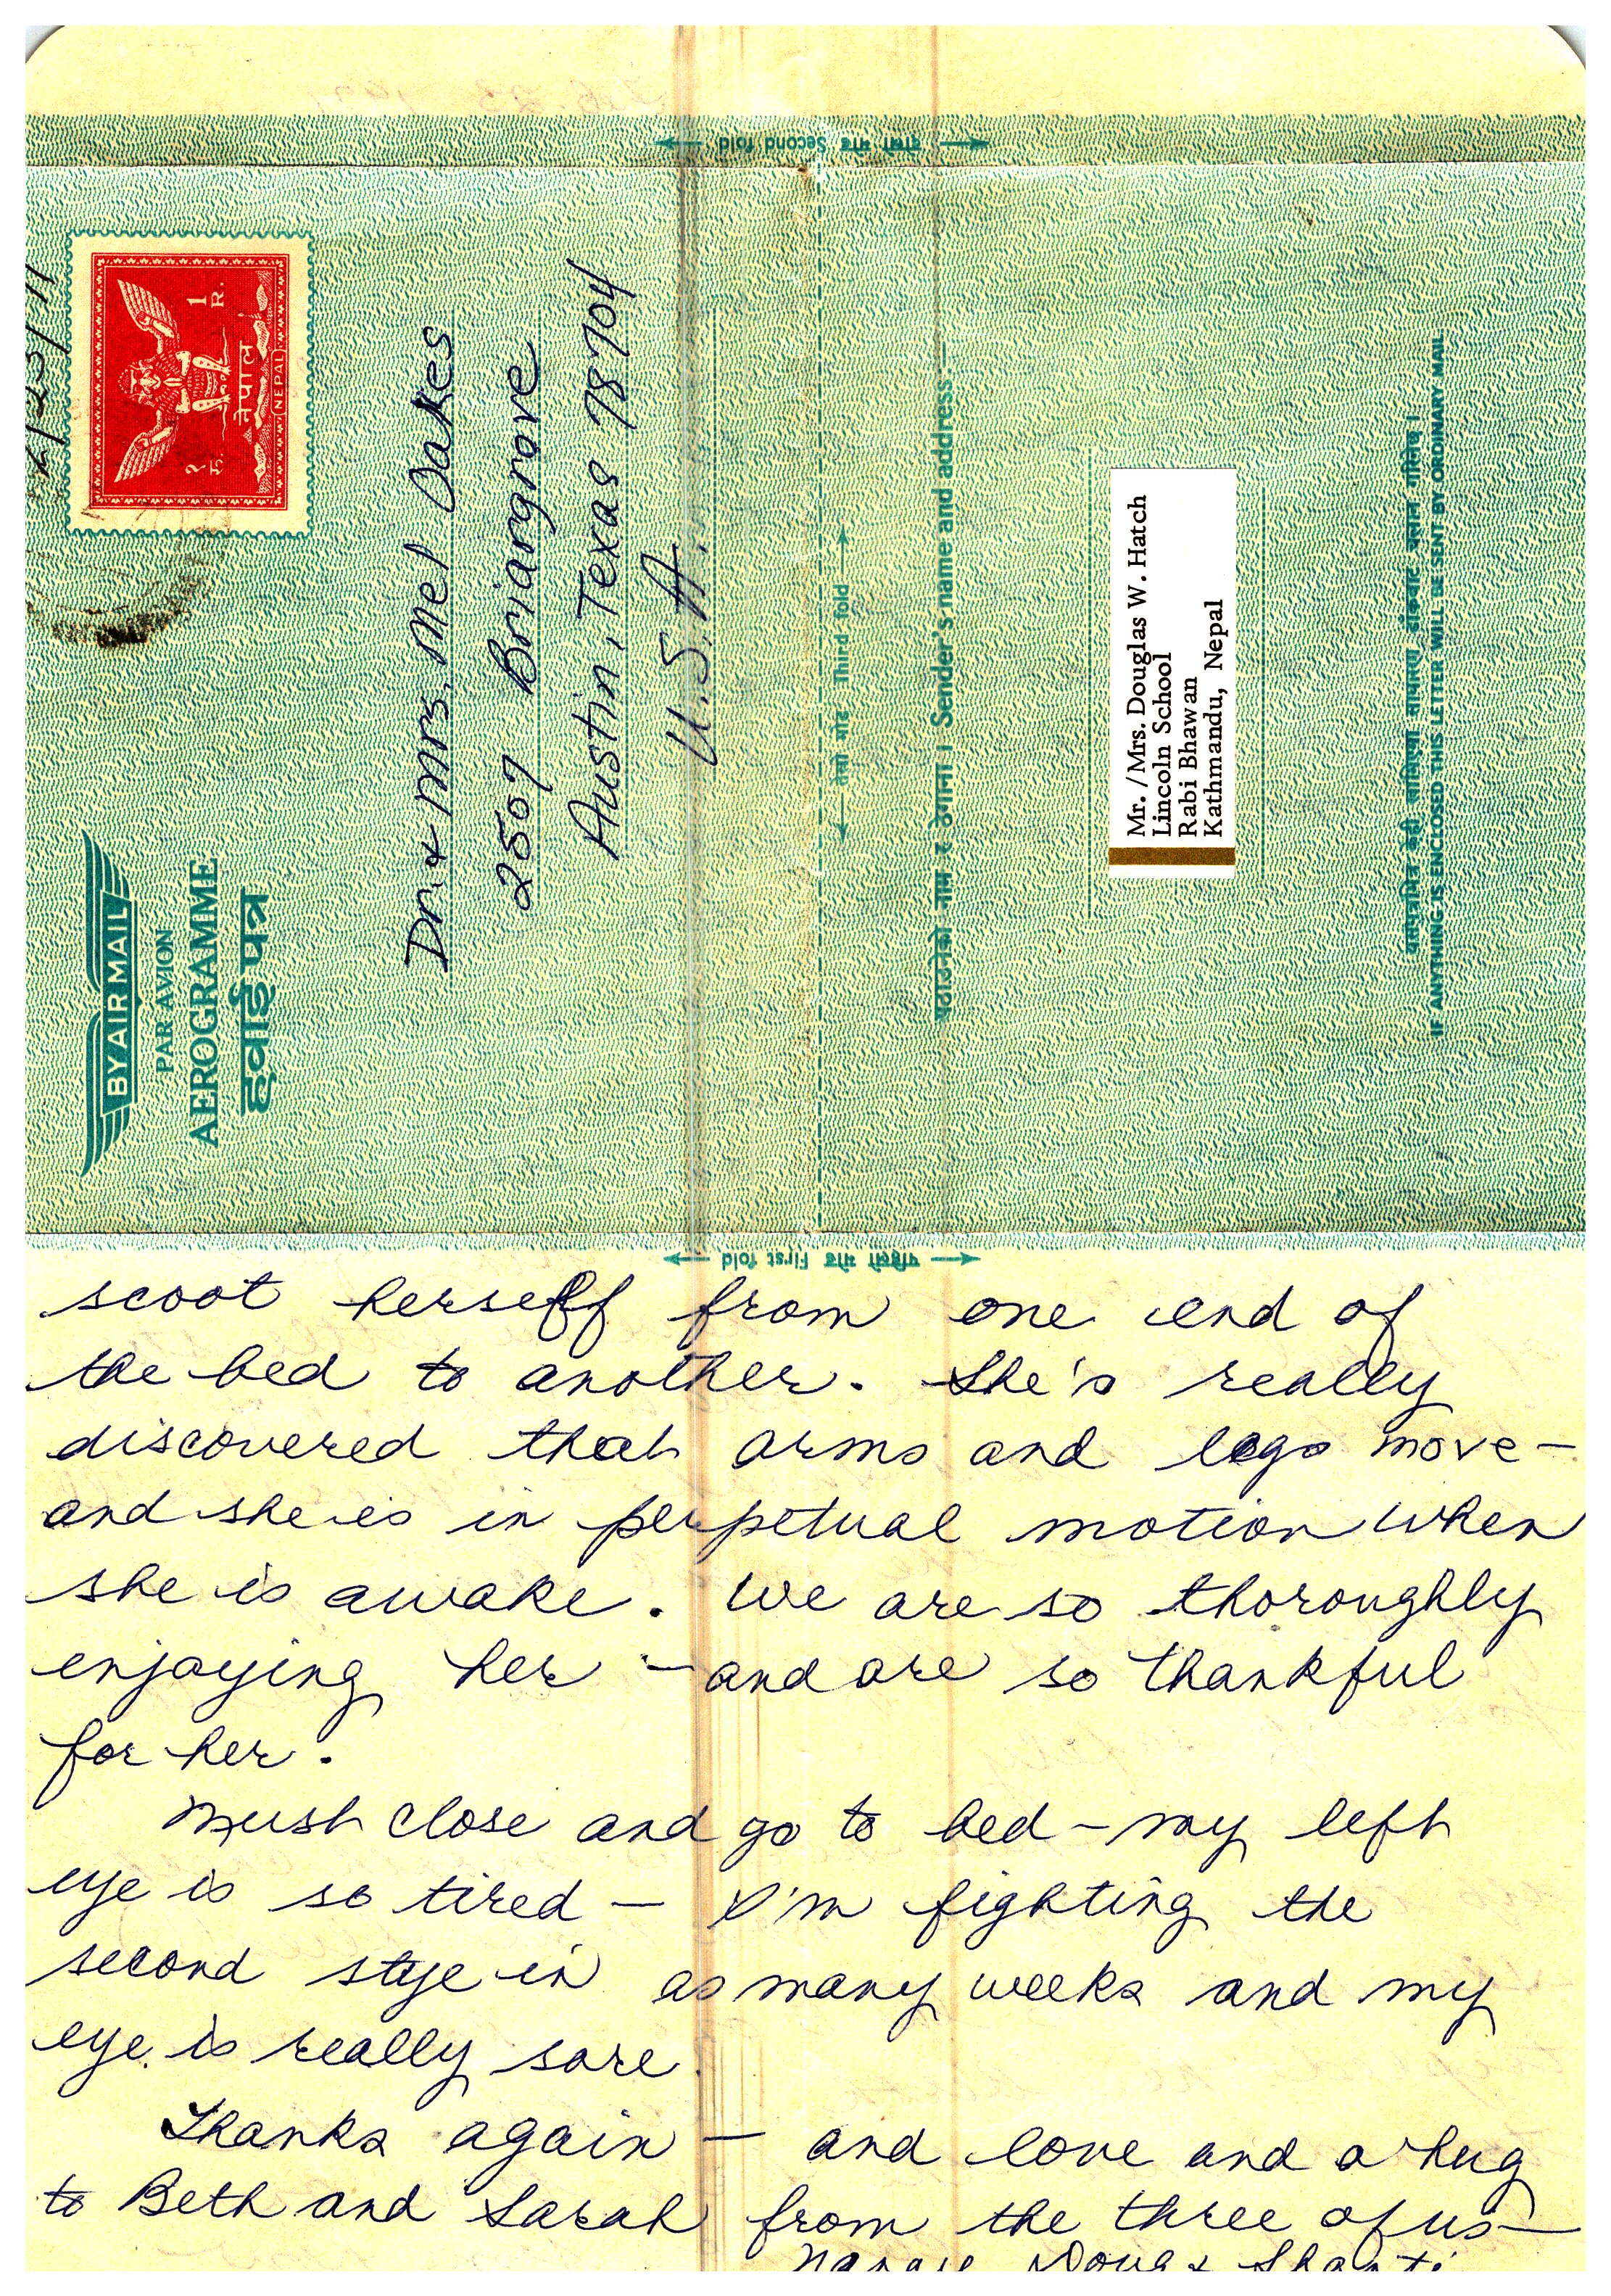 Second fold
2/23/71
१ रु.
1 R.
नेपाल
NEPAL
BY AIR MAIL
PAR AVION
AEROGRAMME
हवाई पत्र
Dr. & Mrs. Mel Oakes
2507 Briargrove
Austin, Texas 78704
U.S.A.
तेस्रो मोड Third fold
पठाउनेको नाम र ठेगाना । Sender's name and address:—
Mr. /Mrs. Douglas W. Hatch
Lincoln School
Rabi Bhawan
Kathmandu, Nepal
IF ANYTHING IS ENCLOSED THIS LETTER WILL BE SENT BY ORDINARY MAIL
पहिलो मोड First fold
scoot herself from one end of
the bed to another. She's really
discovered that arms and legs move —
and she is in perpetual motion when
she is awake. We are so thoroughly
enjoying her — and are so thankful
for her.
Must close and go to bed — my left
eye is so tired — I'm fighting the
second stye in as many weeks and my
eye is really sore.
Thanks again — and love and a hug
to Beth and Sarah from the three of us —
Doug & Shanti